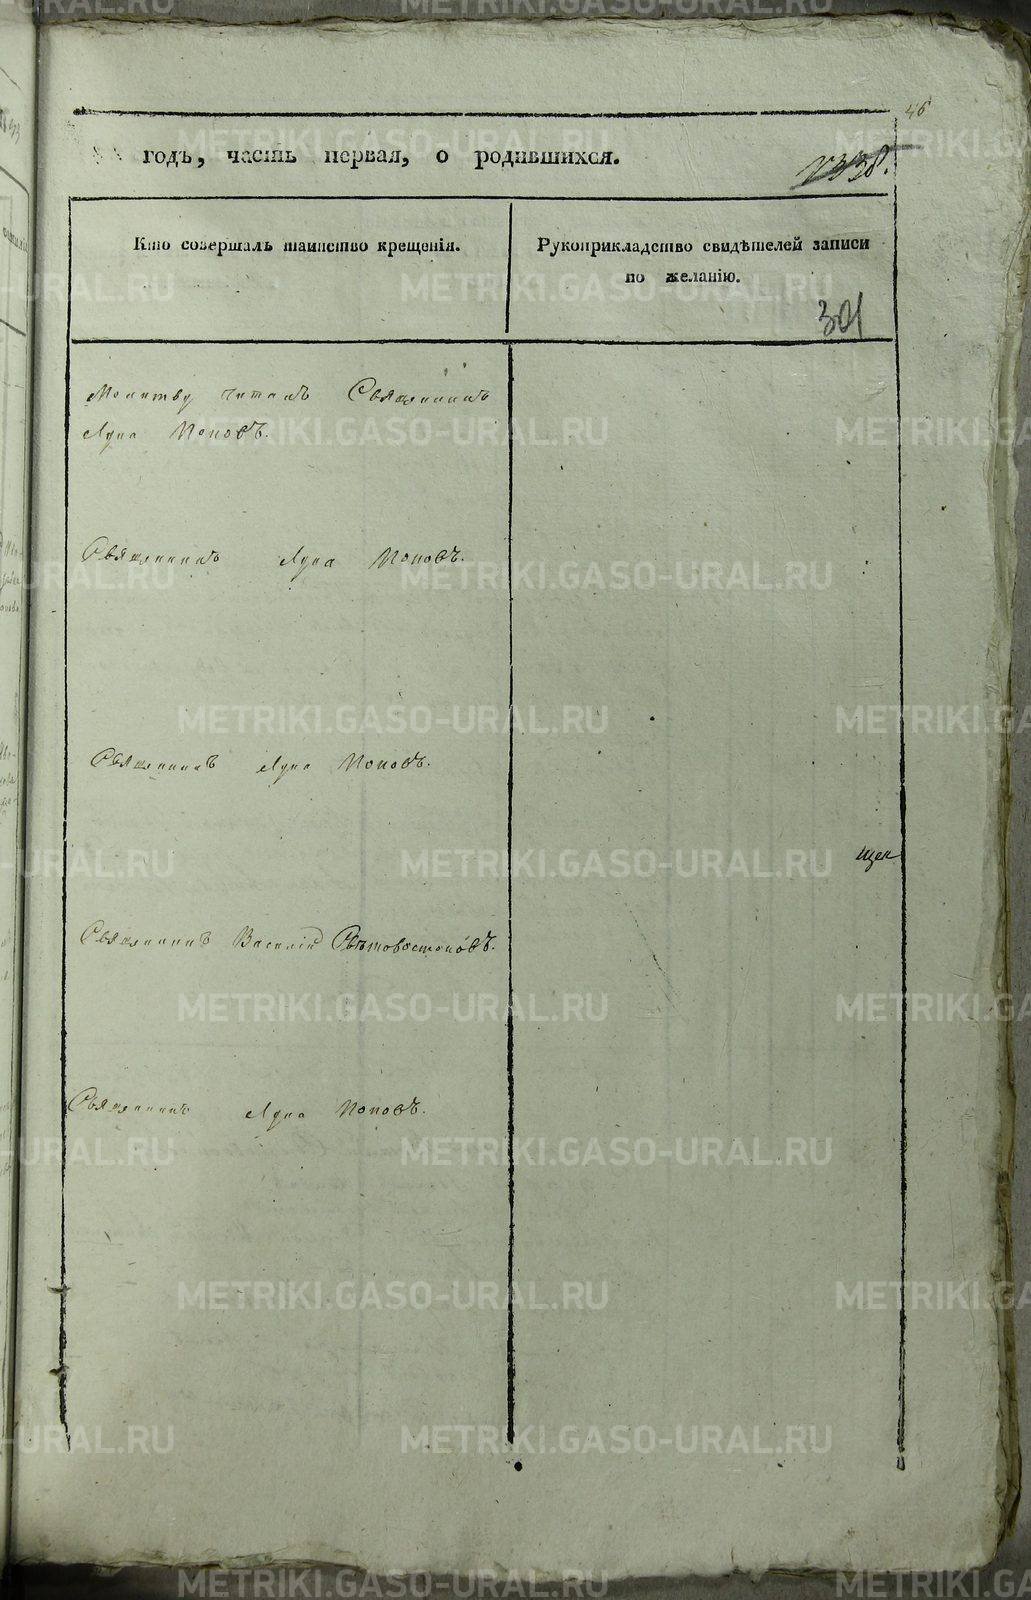 46
годъ, часть первая, о родившихся.
338.
Кто совершалъ таинство крещенія.
Рукоприкладство свидѣтелей записи
по желанію.
301
Молитву читалъ Священникъ
Лука Поповъ.
Священникъ Лука Поповъ.
Священникъ Лука Поповъ.
Священникъ Василій Свѣтовостоковъ.
Священникъ Лука Поповъ.
METRIKI.GASO-URAL.RU